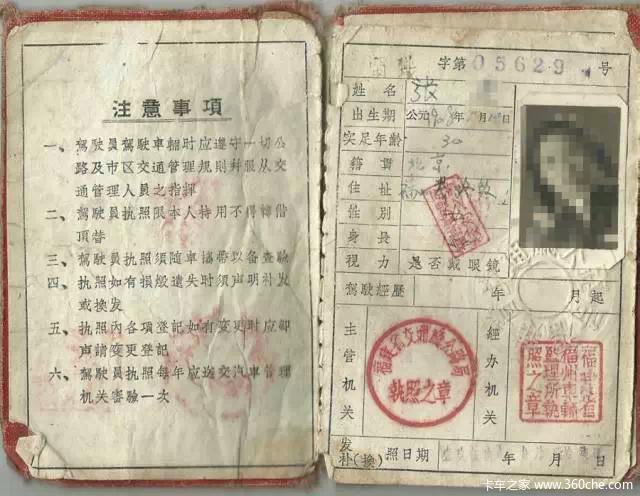 注意事項
一、駕駛員駕駛車輛时应遵守一切公
路及市区交通管理規則并服从交
通管理人員之指揮
二、駕駛員执照限本人特用不得轉借
頂替
三、駕駛員执照須随車攜带以备查驗
四、执照如有損毁遺失时須声明补发
或換发
五、执照內各項登記如有变更时应即
声請变更登記
六、駕駛員执照每年应送交汽車管理
机关審驗一次
字第05629号
姓名 張
出生期 公元 年 月
实足年齡 30
籍貫 北京
住址
性別
身長
視力 是否戴眼鏡
駕駛經歷 年 月起
主管机关
福建省交通廳公路局
執照之章
經办机关
福建省
福州車輛
監理所執
照之章
发
补(換)照日期 年 月 日
卡车之家 www.360che.com